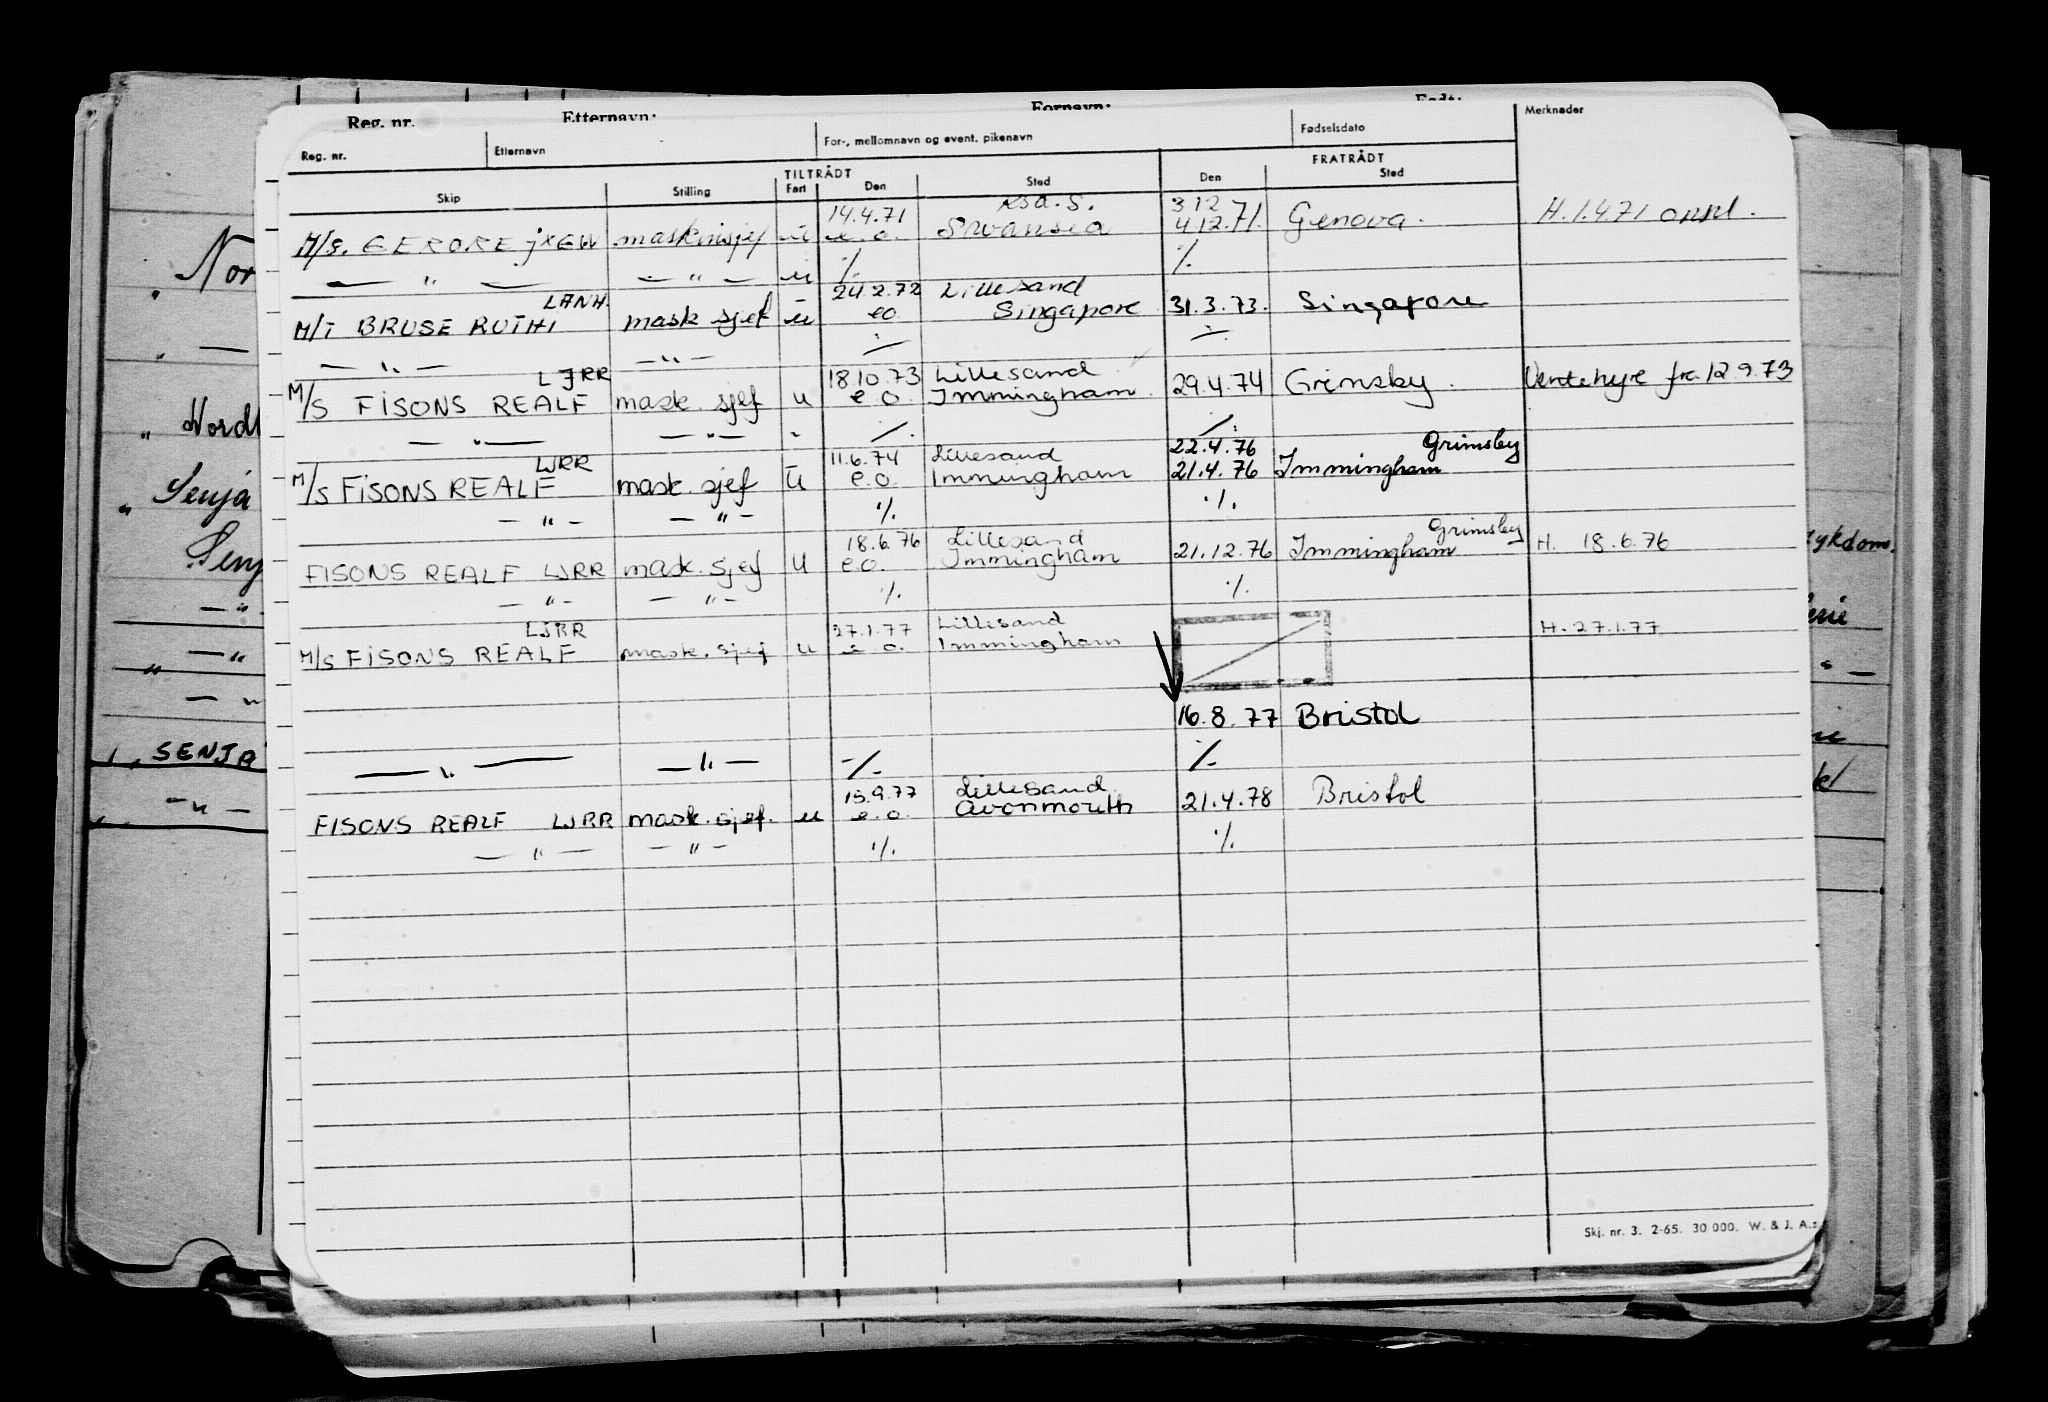 Reg. nr. Etternavn: Fornavn: Født:
Reg. nr. Etternavn For-, mellomnavn og event. pikenavn Fødselsdato Merknader
TILTRÅDT FRATRÅDT
Skip Stilling Fart Den Sted Den Sted
14.4.71 Ksd. S. 3 12
M/S. maskinsjef ū e.o. Swansea 4.12.71. Genova. H. 1.4.71
— " — — " — u ·/. ·/.
LANH. 24.2.72 Lillesand
M/T BRUSE RUTH mask sjef ū eo. Singapore 31.3.73. Singapore
— " — — " — ·/. ·/.
LJRR 18.10.73 Lillesand
M/S FISONS REALF mask. sjef u e.o. Immingham. 29.4.74 Grimsby. Ventehyre fra 12.9.73
— " — — " — - ·/. ·/.
LJRR 11.6.74 Lillesand 22.4.76 Grimsby
M/S FISONS REALF mask. sjef ū e.o. Immingham 21.4.76 Immingham
— " — — " — ·/. ·/.
18.6.76 Lillesand Grimsby
FISONS REALF LJRR mask. sjef u e.o. Immingham 21.12.76 Immingham H. 18.6.76
— " — — " — ·/. ·/.
LJRR 27.1.77 Lillesand
M/S FISONS REALF mask. sjef u e.o. Immingham H. 27.1.77
16.8.77 Bristol
— " — — " — ·/. ·/.
15.9.77 Lillesand
FISONS REALF LJRR mask. sjef. u e.o. Avonmouth 21.4.78 Bristol
— " — — " — ·/. ·/.
Skj. nr. 3. 2-65. 30 000. W. & J. A.s
Nor
Senja
SENJA